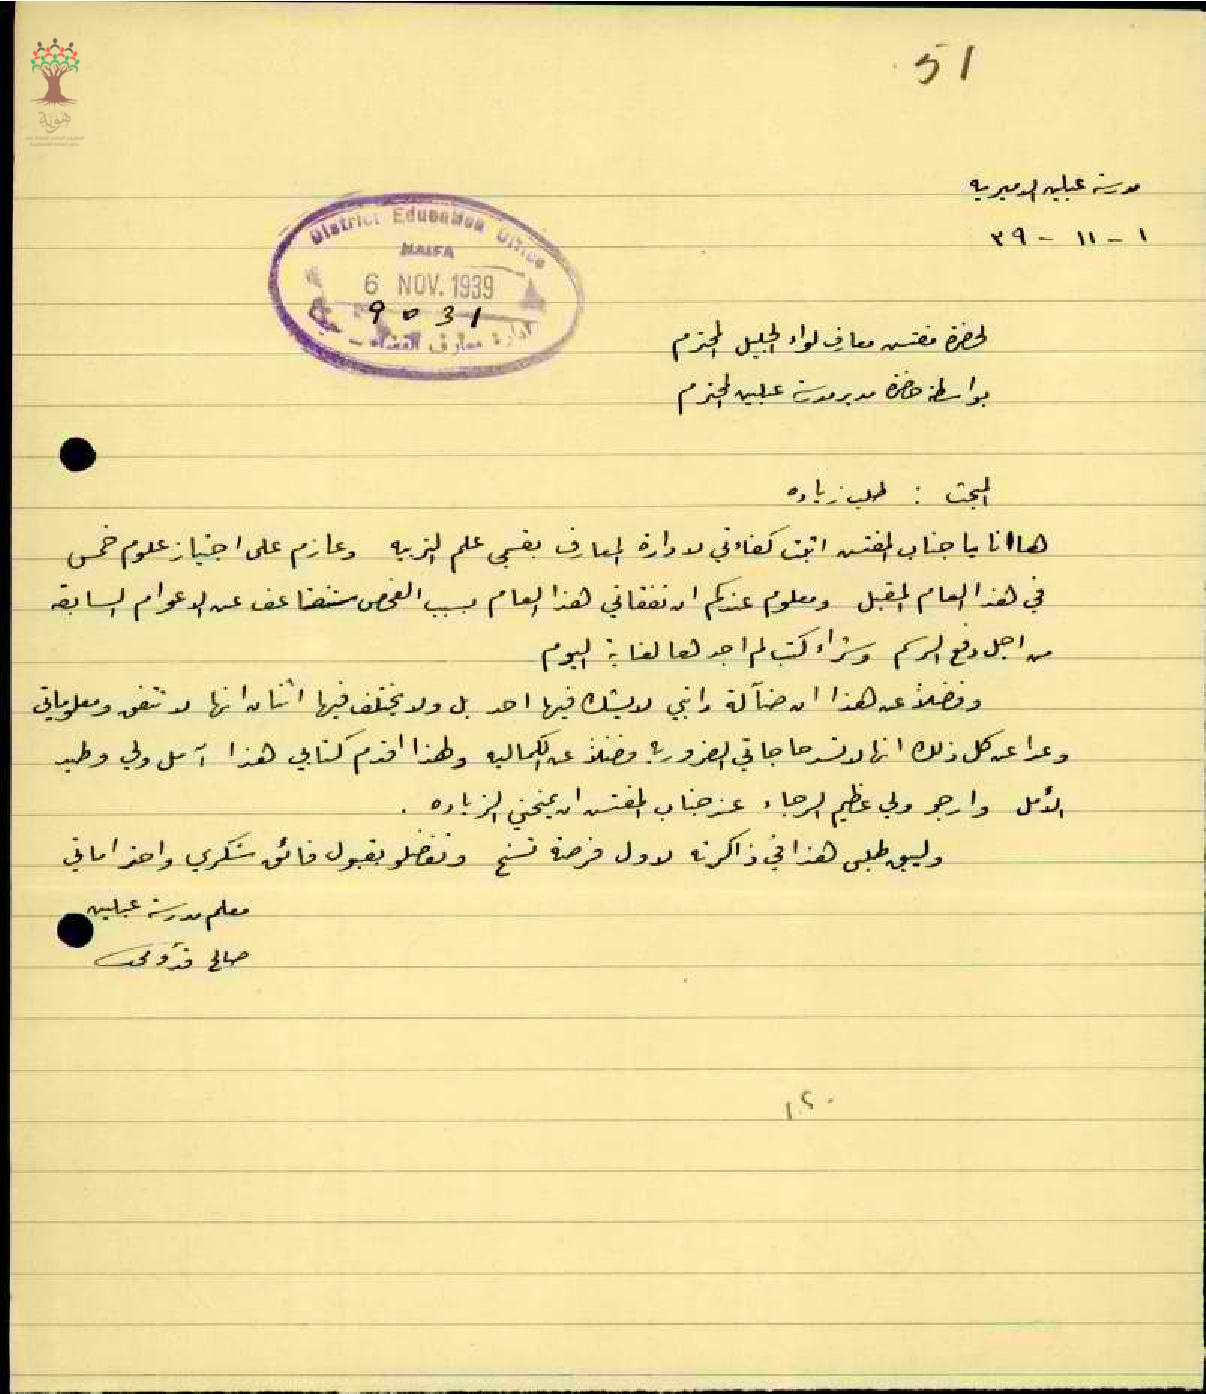 51
هوية
مدرسة عبلين الاميرية
١ - ١١ - ٣٩
District Education Office
HAIFA
6 NOV. 1939
9031
ادارة معارف القضاء حيفا
لحضرة مفتش معارف لواء الجليل المحترم
بواسطة حضرة مدير مدرسة عبلين المحترم
المبحث : طلب زياده
ها انا يا جناب المفتش اثبت كفاءتي لادارة المعارف بفحص علم التربيه وعازم على اجتياز علوم خمس
في هذا العام المقبل ومعلوم عندكم ان نفقاتي هذا العام بسبب الفحص ستتضاعف عن الاعوام السابقه
من اجل دفع الرسم وشراء كتب لم اجدها لغاية اليوم
وفضلاً عن هذا ان ضآلة راتبي لا يشك فيها احد بل ولا يختلف فيها اثنان انها لا تتفق ومعلوماتي
وعدا عن كل ذلك انها لا تسد حاجاتي الضرورية فضلاً عن الكماليه ولهذا اقدم كتابي هذا آمل ولي وطيد
الأمل وارجو ولي عظيم الرجاء عند جناب المفتش ان يمنحني الزياده .
وليبق طلبي هذا في ذاكرته لاول فرصة تسنح وتفضلو بقبول فائق شكري واحتراماتي
معلم مدرسة عبلين
صالح